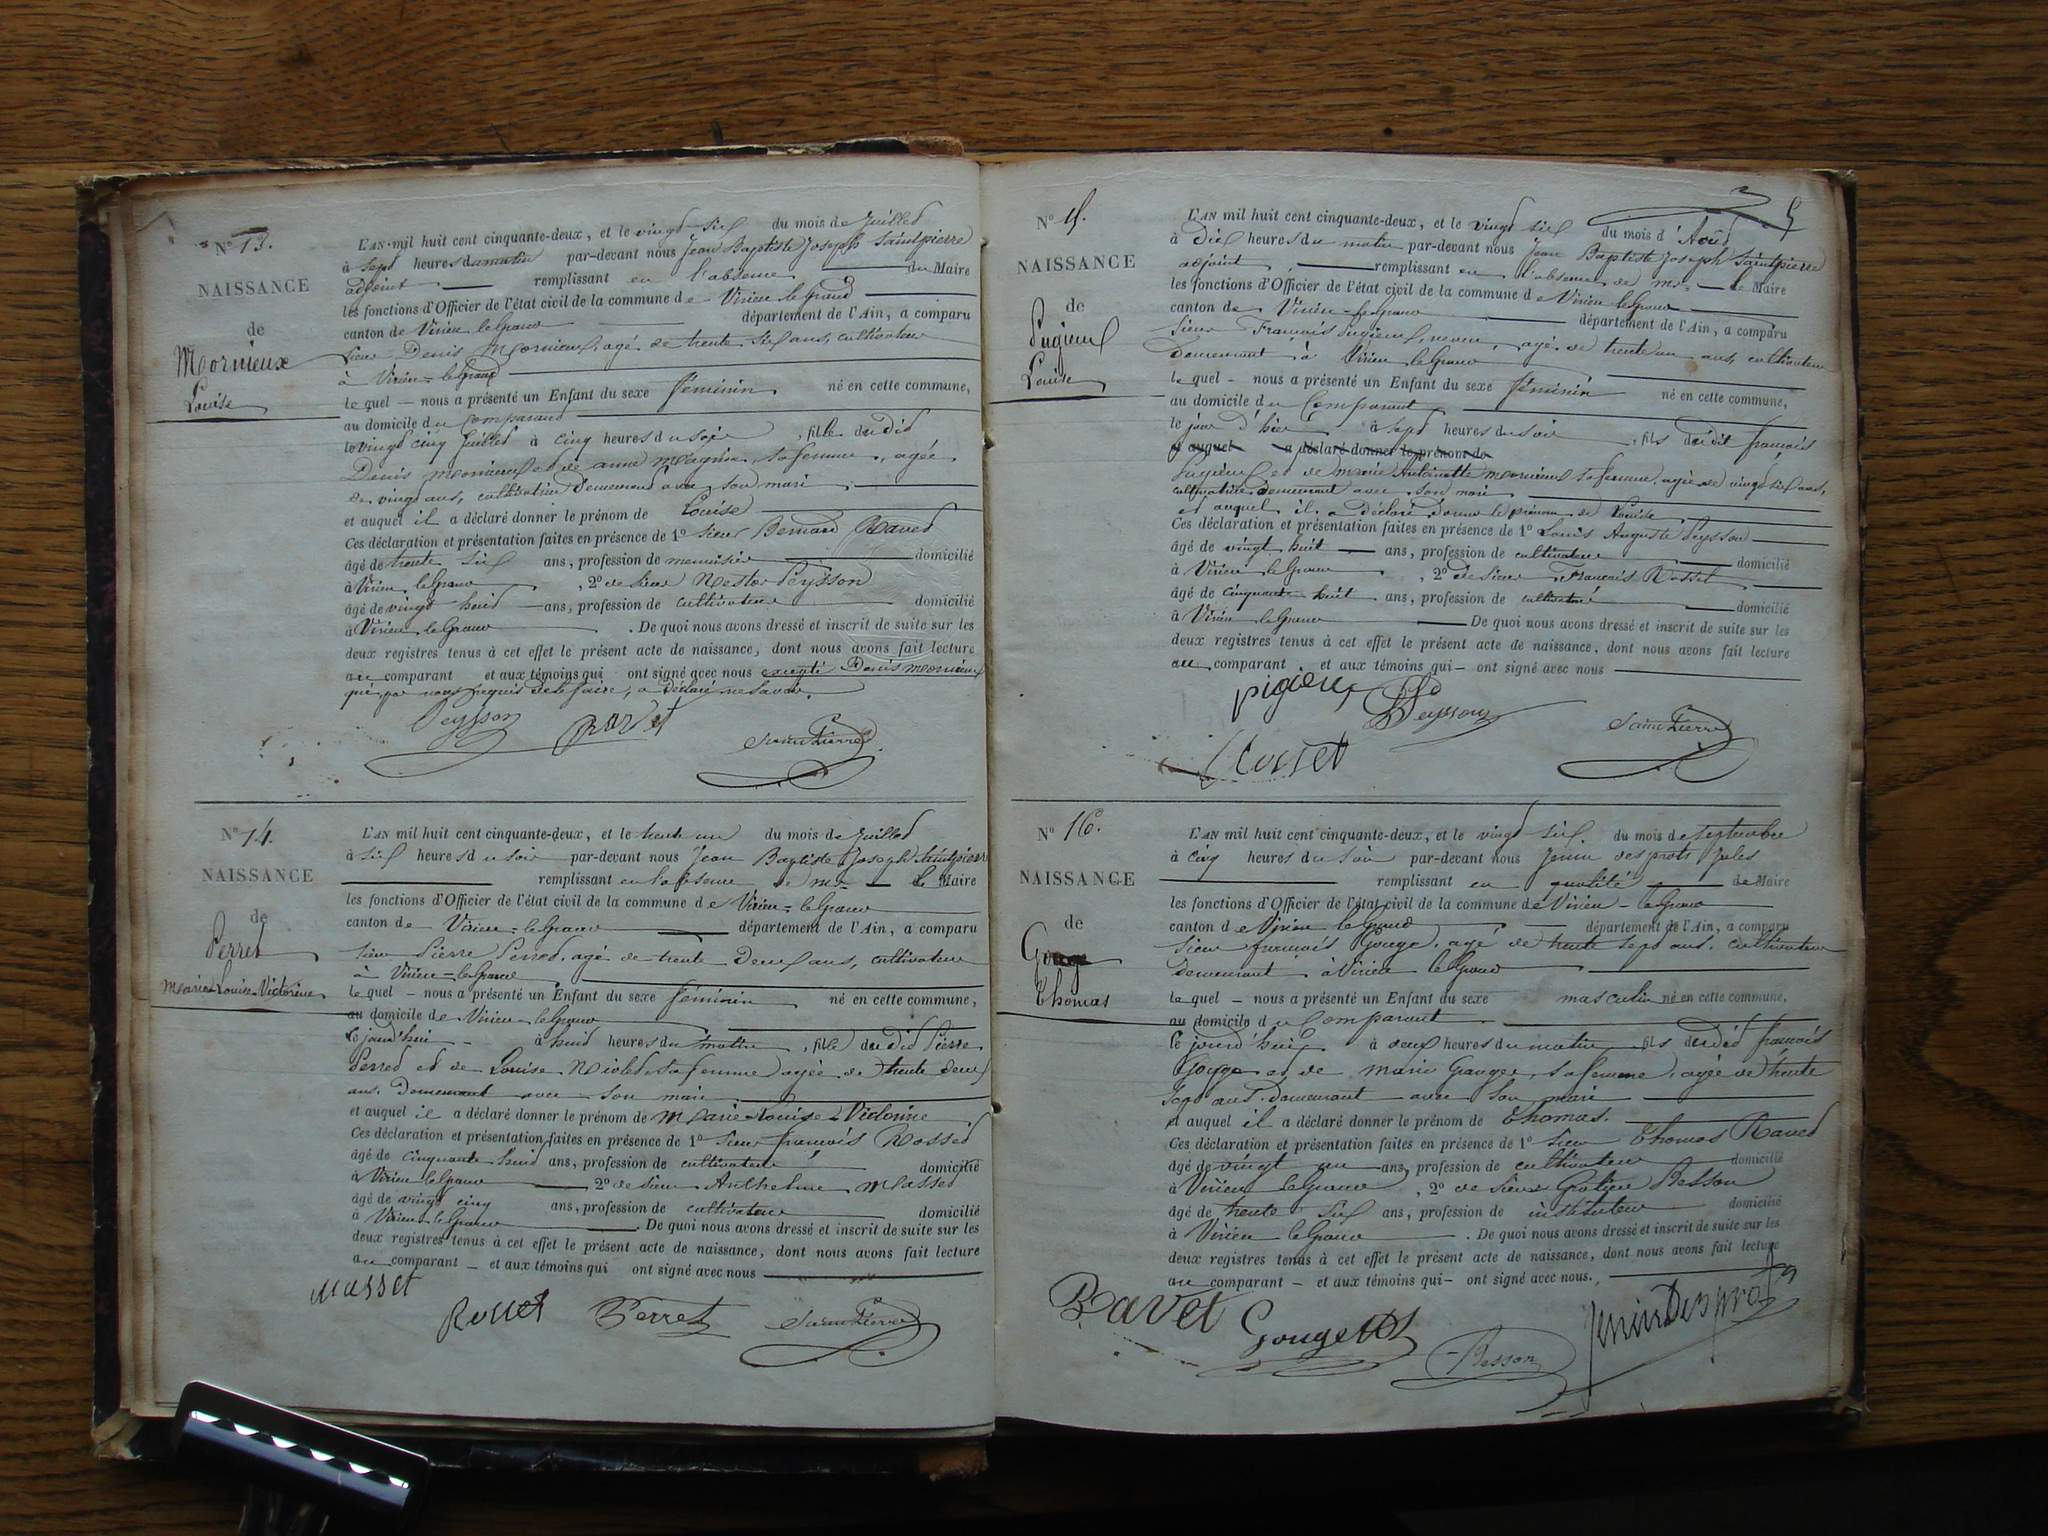 N° 13.
NAISSANCE
de
Mornieux
Louise
L'AN mil huit cent cinquante-deux, et le vingt six du mois de Juillet
à sept heures du matin par-devant nous Jean Baptiste Joseph Saintpierre
adjoint remplissant en l'absence du Maire
les fonctions d'Officier de l'état civil de la commune de Virieu le Grand
canton de Virieu le Grand département de l'Ain, a comparu
Sieur Denis Mornieux, agé de trente six ans, cultivateur
à Virieu-le Grand
lequel nous a présenté un Enfant du sexe féminin né en cette commune,
au domicile du Comparant
le vingt cinq Juillet à cinq heures du soir, fille dudit
Denis Mornieux et de anne Magnin, sa femme, agée
de vingt ans, cultivatrice demeurant avec son mari
et auquel il a déclaré donner le prénom de Louise
Ces déclaration et présentation faites en présence de 1° Sieur Bernard Ravet
âgé de trente six ans, profession de menuisier domicilié
à Virieu le Grand, 2° de Sieur Nestor Peysson
âgé de vingt huit ans, profession de cultivateur domicilié
à Virieu le Grand. De quoi nous avons dressé et inscrit de suite sur les
deux registres tenus à cet effet le présent acte de naissance, dont nous avons fait lecture
au comparant et aux témoins qui ont signé avec nous excepté Denis Mornieux
qui, par nous requis de le faire, a déclaré ne savoir.
Peysson Ravet SaintPierre
N° 14.
NAISSANCE
de
Perret
Marie Louise Victorine
L'AN mil huit cent cinquante-deux, et le trente un du mois de Juillet
à six heures du soir par-devant nous Jean Baptiste Joseph Saintpierre
remplissant en l'absence de Mr le Maire
les fonctions d'Officier de l'état civil de la commune de Virieu-le Grand
canton de Virieu-le Grand département de l'Ain, a comparu
Sieur Pierre Perret, agé de trente Deux ans, cultivateur
à Virieu-le Grand
lequel nous a présenté un Enfant du sexe féminin né en cette commune,
au domicile de Virieu-le Grand
le jourd'hui à huit heures du matin, fille dudit Pierre
Perret et de Louise Niolet sa femme agée de trente deux
ans. Demeurant avec son mari
et auquel il a déclaré donner le prénom de Marie Louise Victorine
Ces déclaration et présentation faites en présence de 1° Sieur françois Rosset
âgé de cinquante huit ans, profession de cultivateur domicilié
à Virieu le Grand 2° de Sieur Anthelme Masset
âgé de vingt cinq ans, profession de cultivateur domicilié
à Virieu le Grand. De quoi nous avons dressé et inscrit de suite sur les
deux registres tenus à cet effet le présent acte de naissance, dont nous avons fait lecture
au comparant et aux témoins qui ont signé avec nous
Masset
Rosset Perret SaintPierre
5
N° 15.
NAISSANCE
de
Pugieux
Louise
L'AN mil huit cent cinquante-deux, et le vingt six du mois d'Août
à Dix heures du matin par-devant nous Jean Baptiste Joseph Saintpierre
adjoint remplissant en l'absence de Mr le Maire
les fonctions d'Officier de l'état civil de la commune de Virieu le Grand
canton de Virieu-le Grand département de l'Ain, a comparu
Sieur François Pugieux, neveu, agé de trente un ans, cultivateur
Demeurant à Virieu le Grand
lequel nous a présenté un Enfant du sexe féminin né en cette commune,
au domicile du Comparant
le jour d'hier à sept heures du soir, fils dudit françois
et auquel a déclaré donner le prénom de
Pugieux et de Marie Antoinette Mornieux sa femme agée de vingt six ans,
cultivatrice demeurant avec son mari
et auquel il a déclaré donner le prénom de Louise
Ces déclaration et présentation faites en présence de 1° Louis Auguste Peysson
âgé de vingt huit ans, profession de cultivateur domicilié
à Virieu le Grand, 2° de Sieur François Rosset
âgé de cinquante huit ans, profession de cultivateur domicilié
à Virieu le Grand De quoi nous avons dressé et inscrit de suite sur les
deux registres tenus à cet effet le présent acte de naissance, dont nous avons fait lecture
au comparant et aux témoins qui ont signé avec nous
pigieux Peysson SaintPierre
Rosset
N° 16.
NAISSANCE
de
Gouge
Thomas
L'AN mil huit cent cinquante-deux, et le vingt six du mois de Septembre
à cinq heures du soir par-devant nous Jenin desprots Jules
remplissant en qualité de Maire
les fonctions d'Officier de l'état civil de la commune de Virieu-le Grand
canton de Virieu le Grand département de l'Ain, a comparu
Sieur françois Gouge, agé de trente sept ans. cultivateur
Demeurant à Virieu le Grand
lequel nous a présenté un Enfant du sexe masculin né en cette commune,
au domicile du Comparant
le jourd'hui à deux heures du matin fils dudit françois
Gouge et de Marie Granger, sa femme, agée de trente
sept ans. demeurant avec son mari
et auquel il a déclaré donner le prénom de Thomas.
Ces déclaration et présentation faites en présence de 1° Sieur Thomas Ravet
âgé de vingt un ans, profession de cultivateur domicilié
à Virieu le Grand, 2° de Sieur Besson
âgé de trente six ans, profession de instituteur domicilié
à Virieu le Grand. De quoi nous avons dressé et inscrit de suite sur les
deux registres tenus à cet effet le présent acte de naissance, dont nous avons fait lecture
au comparant et aux témoins qui ont signé avec nous.
Ravet Gouge Besson JeninDesprots